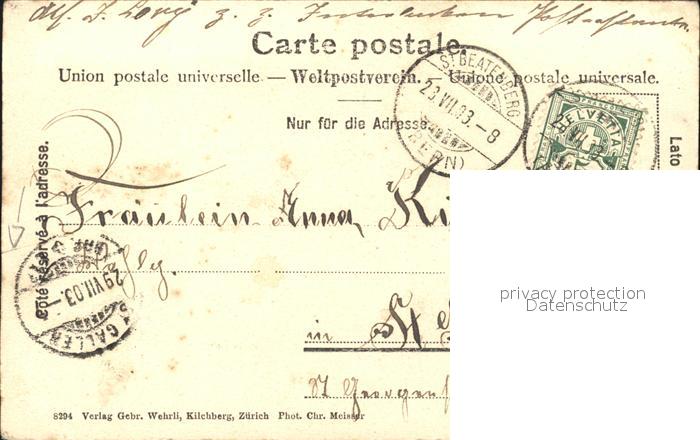 Carte postale.
Union postale universelle. — Weltpostverein. — Unione postale universale.
Nur für die Adresse.
ST BEATENBERG
23.VII.03.–8
(BERN)
HELVETIA
Côté réservé à l'adresse.
Lato
Fräulein Anna Ki
29.VII.03.
ST. GALLEN
in
St Georgen
privacy protection
Datenschutz
8294 Verlag Gebr. Wehrli, Kilchberg, Zürich Phot. Chr. Meisser